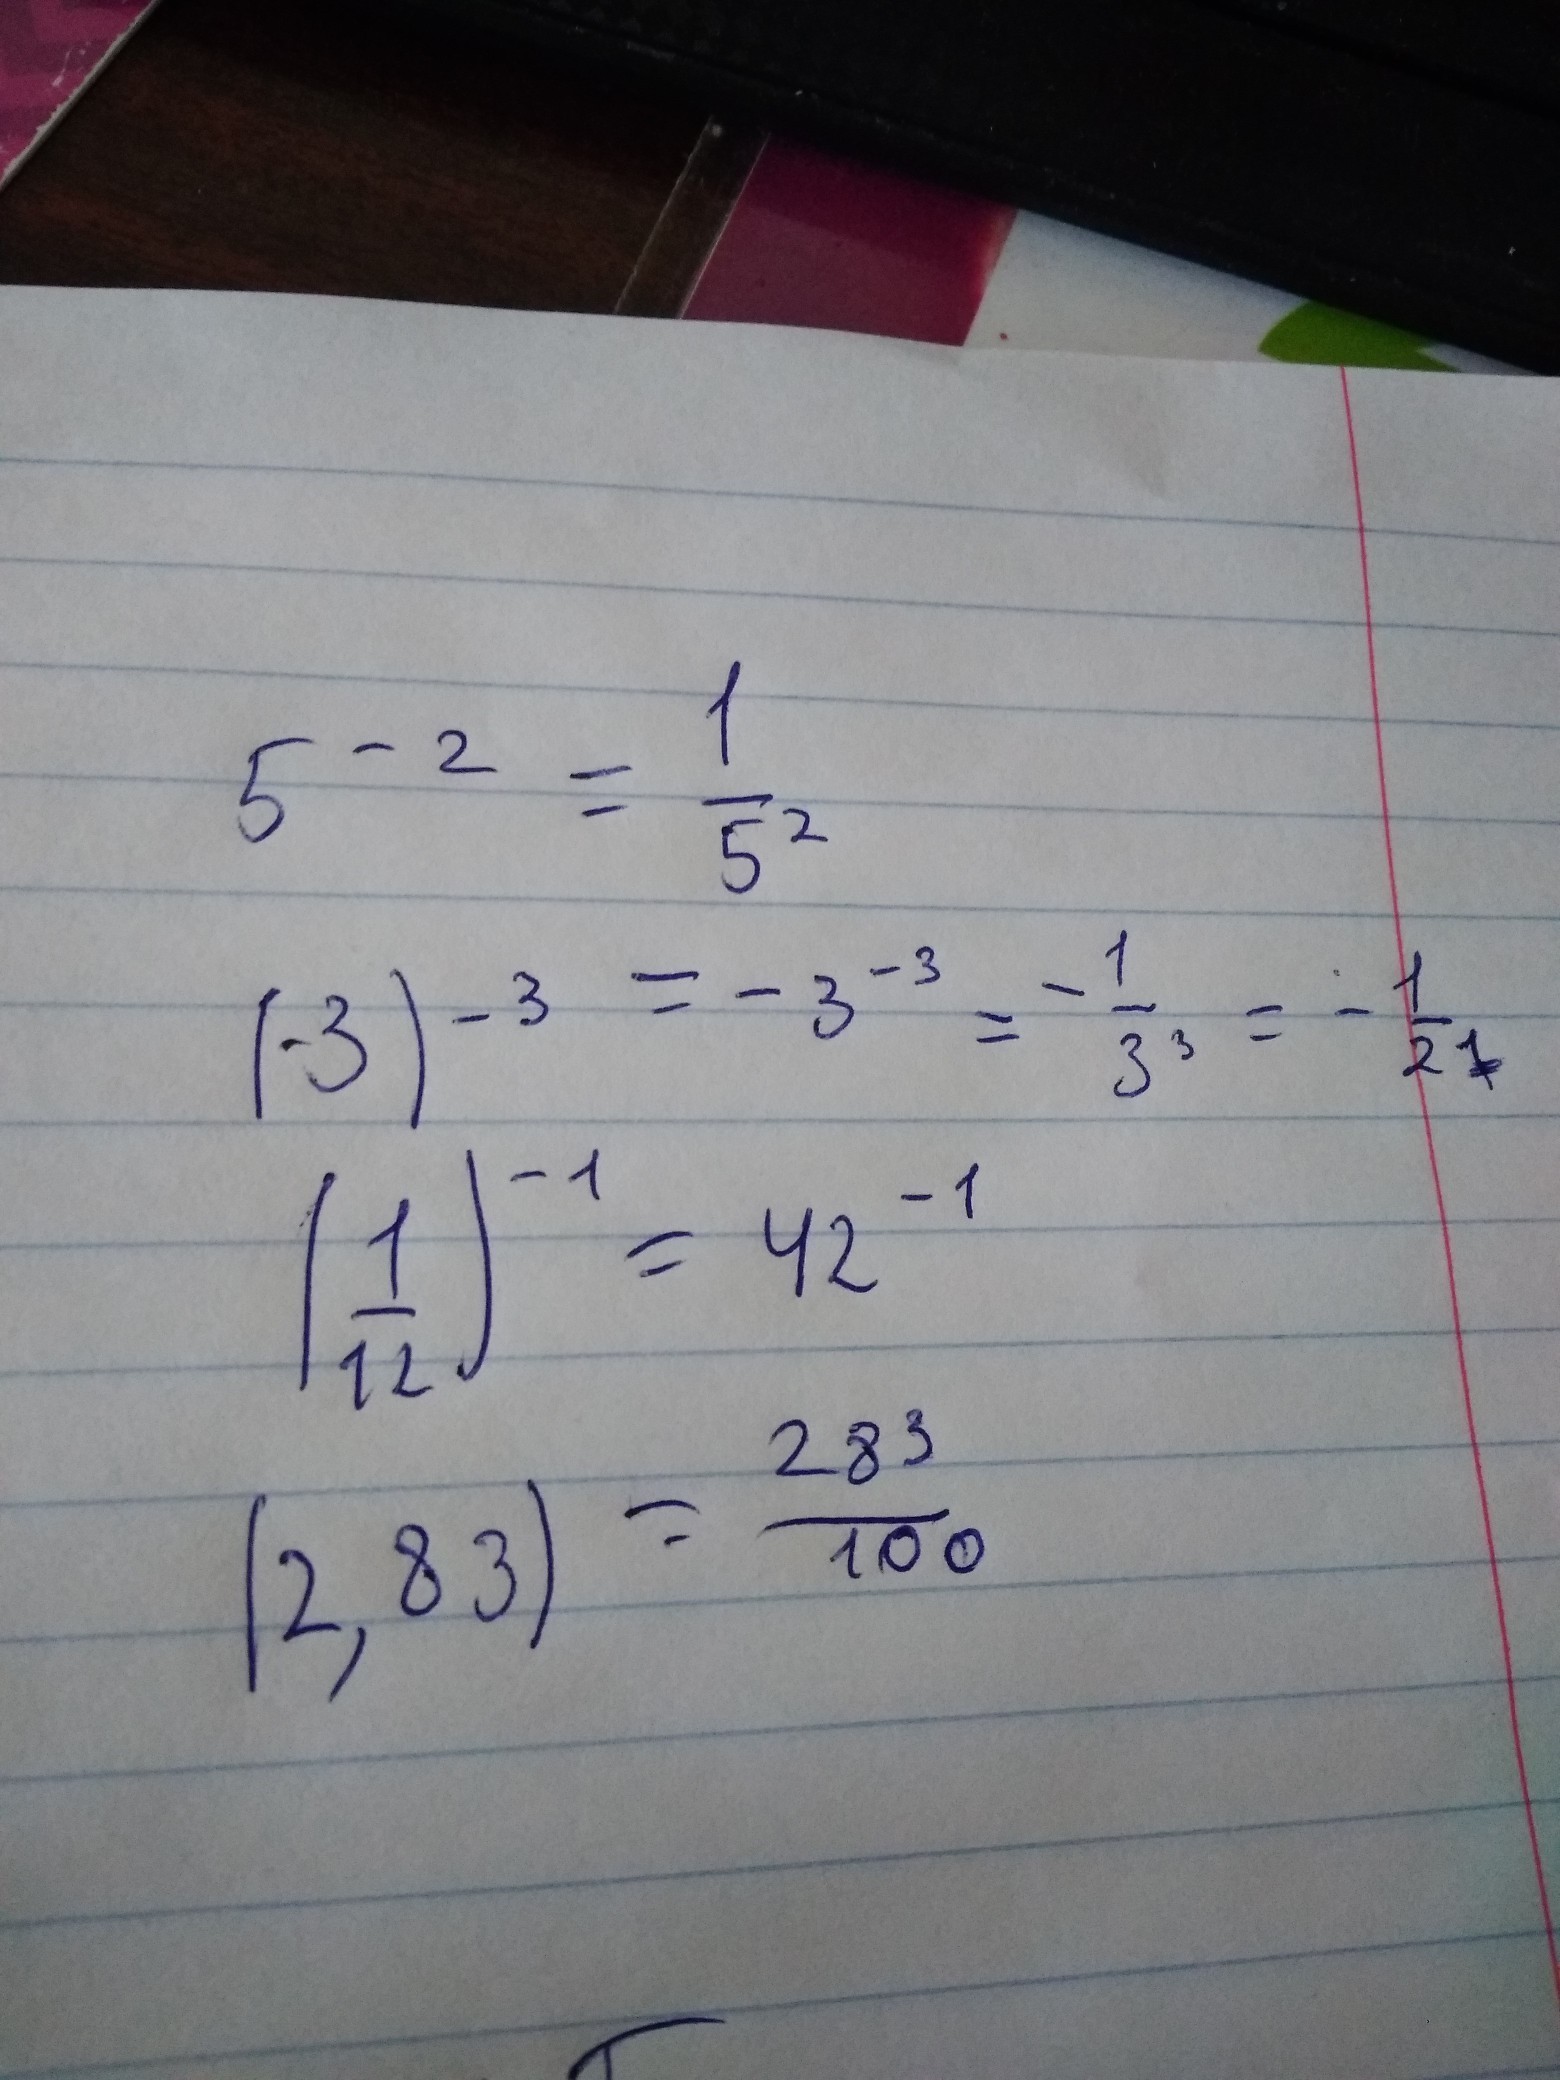 5⁻² = 1/5²
(-3)⁻³ = -3⁻³ = -1/3³ = -1/27
(1/12)⁻¹ = 42⁻¹
(2,83) = 283/100